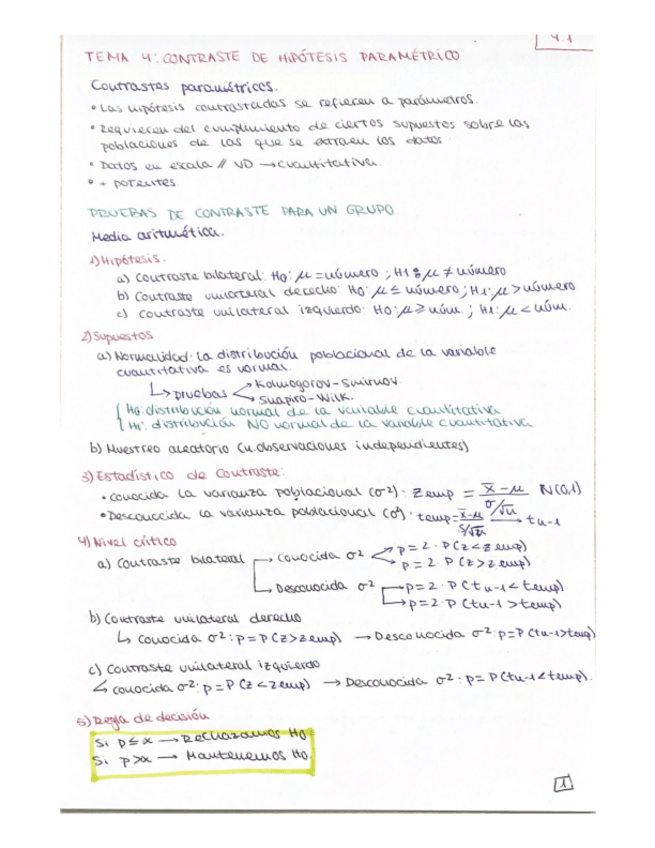 4.1
TEMA 4: CONTRASTE DE HIPÓTESIS PARAMÉTRICO
Contrastes paramétricos.
• Las hipótesis contrastadas se refieren a parámetros.
• Requieren del cumplimiento de ciertos supuestos sobre las
poblaciones de las que se extraen los datos.
• Datos en escala // VD → cuantitativa.
• + potentes
PRUEBAS DE CONTRASTE PARA UN GRUPO
Media aritmética.
1) Hipótesis.
a) Contraste bilateral: H0: μ = número ; H1: μ ≠ número
b) Contraste unilateral derecho: H0: μ ≤ número ; H1: μ > número
c) Contraste unilateral izquierdo: H0: μ ≥ núm. ; H1: μ < núm.
2) Supuestos
a) Normalidad: La distribución poblacional de la variable
cuantitativa es normal.
↳ pruebas < Kolmogorov-Smirnov.
Shapiro-Wilk.
H0: distribución normal de la variable cuantitativa
H1: distribución NO normal de la variable cuantitativa.
b) Muestreo aleatorio (n observaciones independientes)
3) Estadístico de Contraste:
• Conocida la varianza poblacional (σ²): Zemp = x̄ - μ / σ/√n N(0,1)
• Desconocida la varianza poblacional (σ²): temp = x̄ - μ / S/√n → tn-1
4) Nivel crítico
a) Contraste bilateral → Conocida σ² < p = 2 · P(z < zemp)
p = 2 · P(z > zemp)
→ Desconocida σ² → p = 2 · P(tn-1 < temp)
→ p = 2 · P(tn-1 > temp)
b) Contraste unilateral derecho
↳ Conocida σ²: p = P(z > zemp) → Desconocida σ²: p = P(tn-1 > temp)
c) Contraste unilateral izquierdo
↳ conocida σ²: p = P(z < zemp) → Desconocida σ²: p = P(tn-1 < temp).
5) Regla de decisión
Si p ≤ α → Rechazamos H0
Si p > α → Mantenemos H0.
1